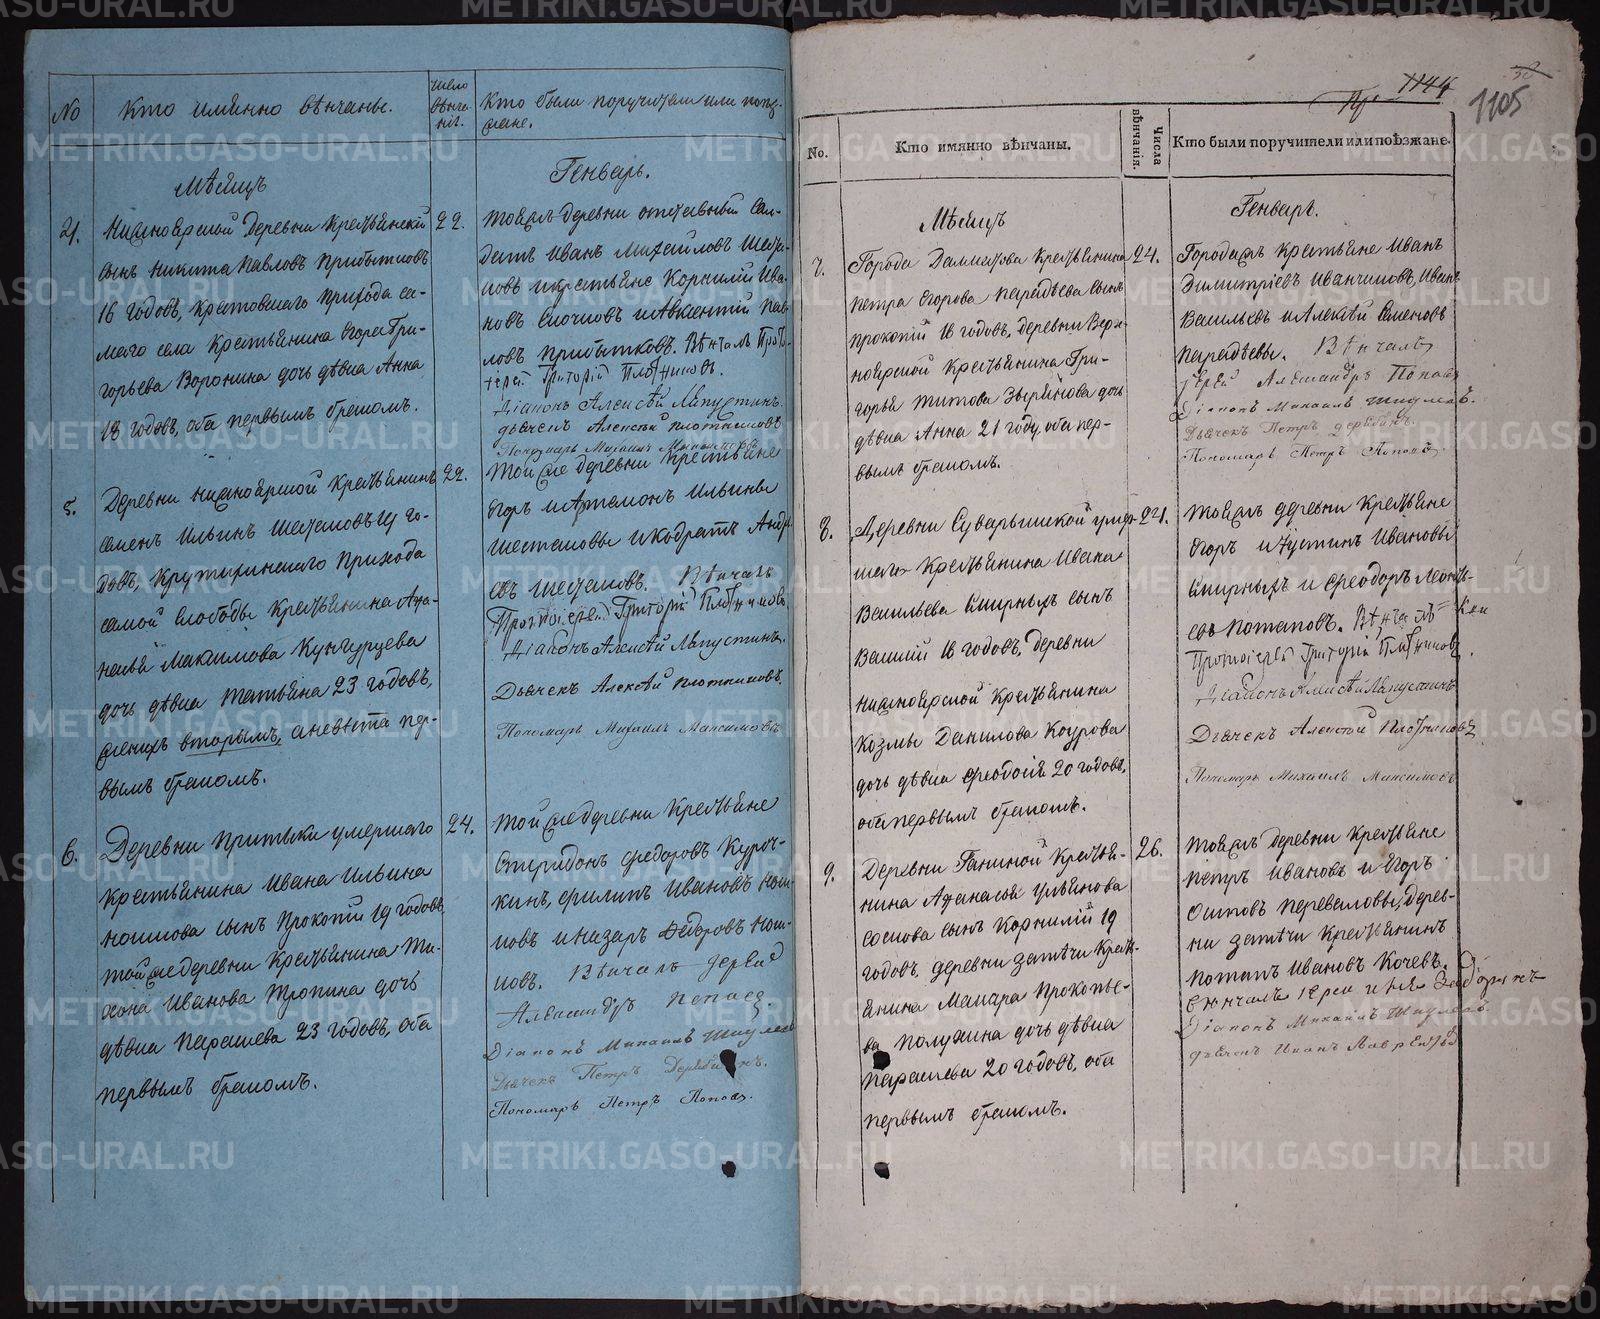 No
Кто имянно вѣнчаны.
Число вѣнча-нiя.
Кто были поручители или поез-
жане.
Мѣсяцъ
Генварь.
4.
Нижноярской Деревни Крестьянскiй
сынъ Никита Павловъ Прибытковъ
16 годовъ, Крестовского прихода са-
маго села Крестьянина Егора Гри-
горьева Воронина дочь дѣвица Анна
18 годовъ, оба первымъ бракомъ.
22.
Тойжъ деревни отставный Сол-
датъ Иванъ Михайловъ Шеста-
ковъ и крестьяне Корнилiй Ива-
новъ и Авксентiй Пав-
ловъ Прибытковъ. Вѣнчалъ Прото-
iерей Григорiй Плотниковъ.
Дiаконъ Алексѣй Лапустинъ.
дьячекъ Алексѣй Плотниковъ
Пономарь Михаилъ Максимовъ
5.
Деревни Нижноярской Крестьянинъ
Семенъ Ильинъ Шестаковъ 19 го-
довъ, Крутихинского Прихода
самой слободы Крестьянина Афа-
насья Максимова Кунгурцева
дочь дѣвица Татьяна 23 годовъ,
женихъ вторымъ, а невѣста пер-
вымъ бракомъ.
22.
Той же деревни Крестьяне
Егоръ и Артамонъ Ильины
Шестаковы и Кодратъ Андре-
евъ Шестаковъ. Вѣнчалъ
Протоiерей Григорiй Плотниковъ.
Дiаконъ Алексѣй Лапустинъ.
Дьячекъ Алексѣй Плотниковъ.
Пономарь Михаилъ Максимовъ
6.
Деревни Притыки умершаго
Крестьянина Ивана Ильина
Ношкова сынъ Прокопiй 19 годовъ
той же деревни Крестьянина Ти-
хона Иванова Тропина дочь
дѣвица Парасева 23 годовъ, оба
первымъ бракомъ.
24.
Той же деревни Крестьяне
Спиридонъ Федоровъ Куроч-
кинъ, Филипъ Ивановъ Нош-
ковъ и Назаръ Федоровъ Нош-
ковъ. Вѣнчалъ Iерей
Александръ Поповъ
Дiаконъ Михаилъ
Дьячекъ Петръ Дерябинъ.
Пономарь Петръ Поповъ.
1144
1105
No.
Кто имянно вѣнчаны.
Числа вѣнчанiя.
Кто были поручители или поѣзжане.
Мѣсяцъ
Генварь.
7.
Города Далматова Крестьянина
Петра Егорова Парадѣева сынъ
Прокопiй 18 годовъ, деревни Верх-
ноярской Крестьянина Гри-
горья Титова Звѣрянова дочь
дѣвица Анна 21 году, оба пер-
вымъ бракомъ.
24.
Города жъ Крестьяне Иванъ
Димитрiевъ Иванчиковъ, Иванъ
Васильевъ и Алексѣй Семеновъ
Парадѣевы. Вѣнчалъ
Iерей Александръ Поповъ
Дiаконъ Михаилъ
Дьячекъ Петръ Дерябинъ.
Пономарь Петръ Поповъ.
8.
Деревни Суварышской умер-
шаго Крестьянина Ивана
Васильева Смирныхъ сынъ
Василiй 18 годовъ, деревни
Нижноярской Крестьянина
Козмы Данилова Коурова
дочь дѣвица Феодосiя 20 годовъ,
оба первымъ бракомъ.
24.
Тойжъ деревни Крестьяне
Егоръ и Устинъ Ивановы
Смирныхъ и Феодоръ
евъ Потаповъ. Вѣнчалъ
Протоiерей Григорiй Плотниковъ.
Дiаконъ Алексѣй Лапустинъ
Дьячекъ Алексѣй Плотниковъ
Пономарь Михаилъ Максимовъ
9.
Деревни Ганиной Крестья-
нина Афанасья Ульянова
Соснова сынъ Корнилiй 19
годовъ, деревни Затѣчи Кресть-
янина Макара Прокопье-
ва Полухина дочь дѣвица
Парасева 20 годовъ, оба
первымъ бракомъ.
26.
Тойжъ деревни Крестьяне
Петръ Ивановъ и Егоръ
Осиповъ Переваловы, дерев-
ни Затѣчи Крестьянинъ
Потапъ Ивановъ Кочевъ.
Вѣнчалъ Iерей
Дiаконъ Михаилъ
дьячекъ Иванъ Лаврентьевъ
METRIKI.GASO-URAL.RU